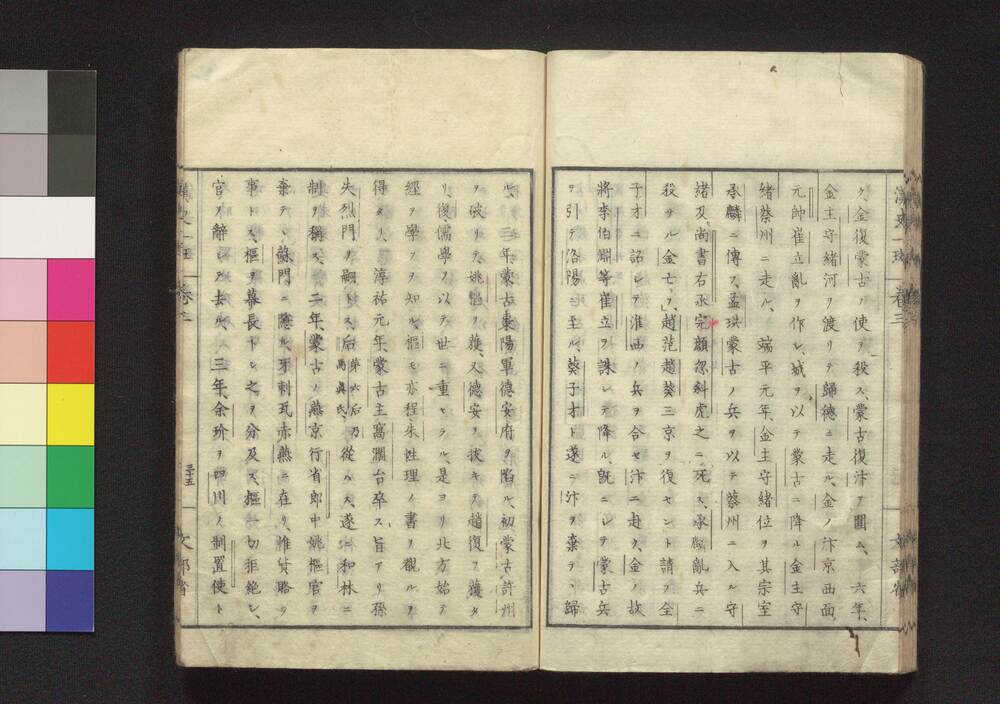 漢史一班 卷三
ク、金復蒙古ノ使ヲ殺ス、蒙古復汴ヲ圍ム、 六年、
金主守緒河ヲ渡リテ歸德ニ走ル、金ノ汴京西面
元帥崔立亂ヲ作シ、城ヲ以テ蒙古ニ降ル金主守
緒蔡州ニ走ル、 端平元年、金主守緒位ヲ其宗室
承麟ニ傳フ、孟珙蒙古ノ兵ヲ以テ蔡州ニ入ル守
緒及尚書右丞完顏忽斜虎之ニ死ス、承麟亂兵ニ
殺サル金亡フ、趙范趙葵三京ヲ復セント請フ全
子才ニ詔シテ淮西ノ兵ヲ合セ汴ニ赴ク、金ノ故
將李伯淵等崔立ヲ誅シテ降ル、既ニシテ蒙古兵
ヲ引テ洛陽ニ至ル、葵子才ト遂ニ汴ヲ棄テ、歸
文部省
ル、 三年、蒙古棗陽軍德安府ヲ陷ル、初蒙古許州
ヲ破リテ、姚樞ヲ獲、又德安ヲ拔キテ趙復ヲ獲タ
リ、復儒學ヲ以テ世ニ重セラル、是ヨリ北方始テ
經ヲ學フヲ知ル、樞モ亦程朱性理ノ書ヲ觀ルヲ
得タリ、 淳祐元年、蒙古主窩濶台卒ス、旨アリ孫
失烈門ヲ嗣トス、后第六后乃馬眞氏、從ハス、遂ニ和林ニ
制ヲ稱ス、 二年、蒙古ノ燕京行省郎中姚樞官ヲ
棄テ、蘇門ニ隱ル、牙剌瓦赤燕ニ在リ、惟貨賂ヲ
事トス、樞ヲ幕長トシ之ヲ分及ス、樞一切拒絶シ、
官ヲ辭シテ去ル、 三年、余玠ヲ四川ノ制置使ト
卷三
三十五
文部省